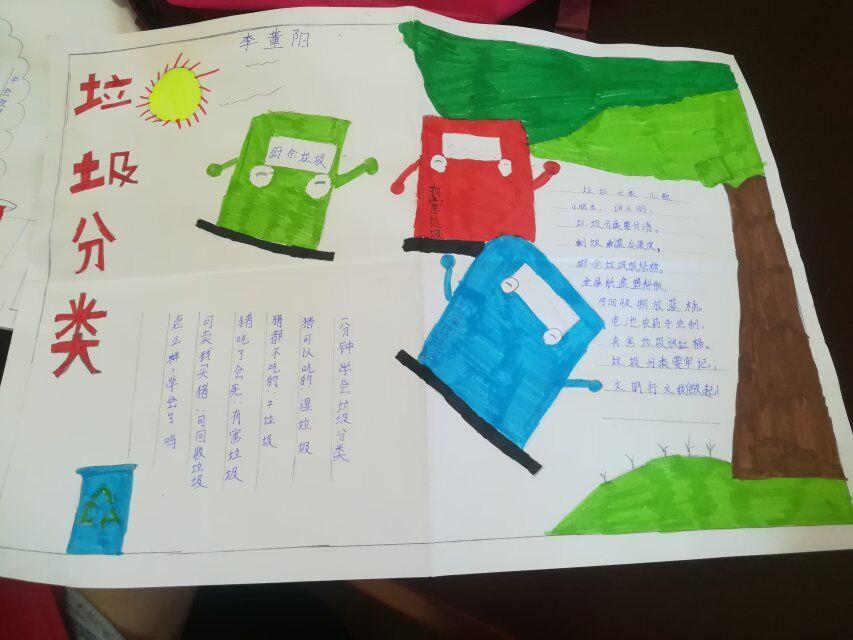 李董阳
垃圾分类
厨余垃圾
有害垃圾
一分钟学会垃圾分类
猪可以吃的:湿垃圾
猪都不吃的:干垃圾
猪吃了会死:有害垃圾
可卖钱买猪:可回收垃圾
怎么样,学会了吗
垃圾分类儿歌
小朋友,讲文明,
垃圾分类要分清。
剩饭剩菜瓜果皮,
厨余垃圾放绿桶。
金属纸盒塑料瓶,
可回收物放蓝桶。
电池农药杀虫剂,
有害垃圾红桶。
垃圾分类要牢记,
文明行文我做起!